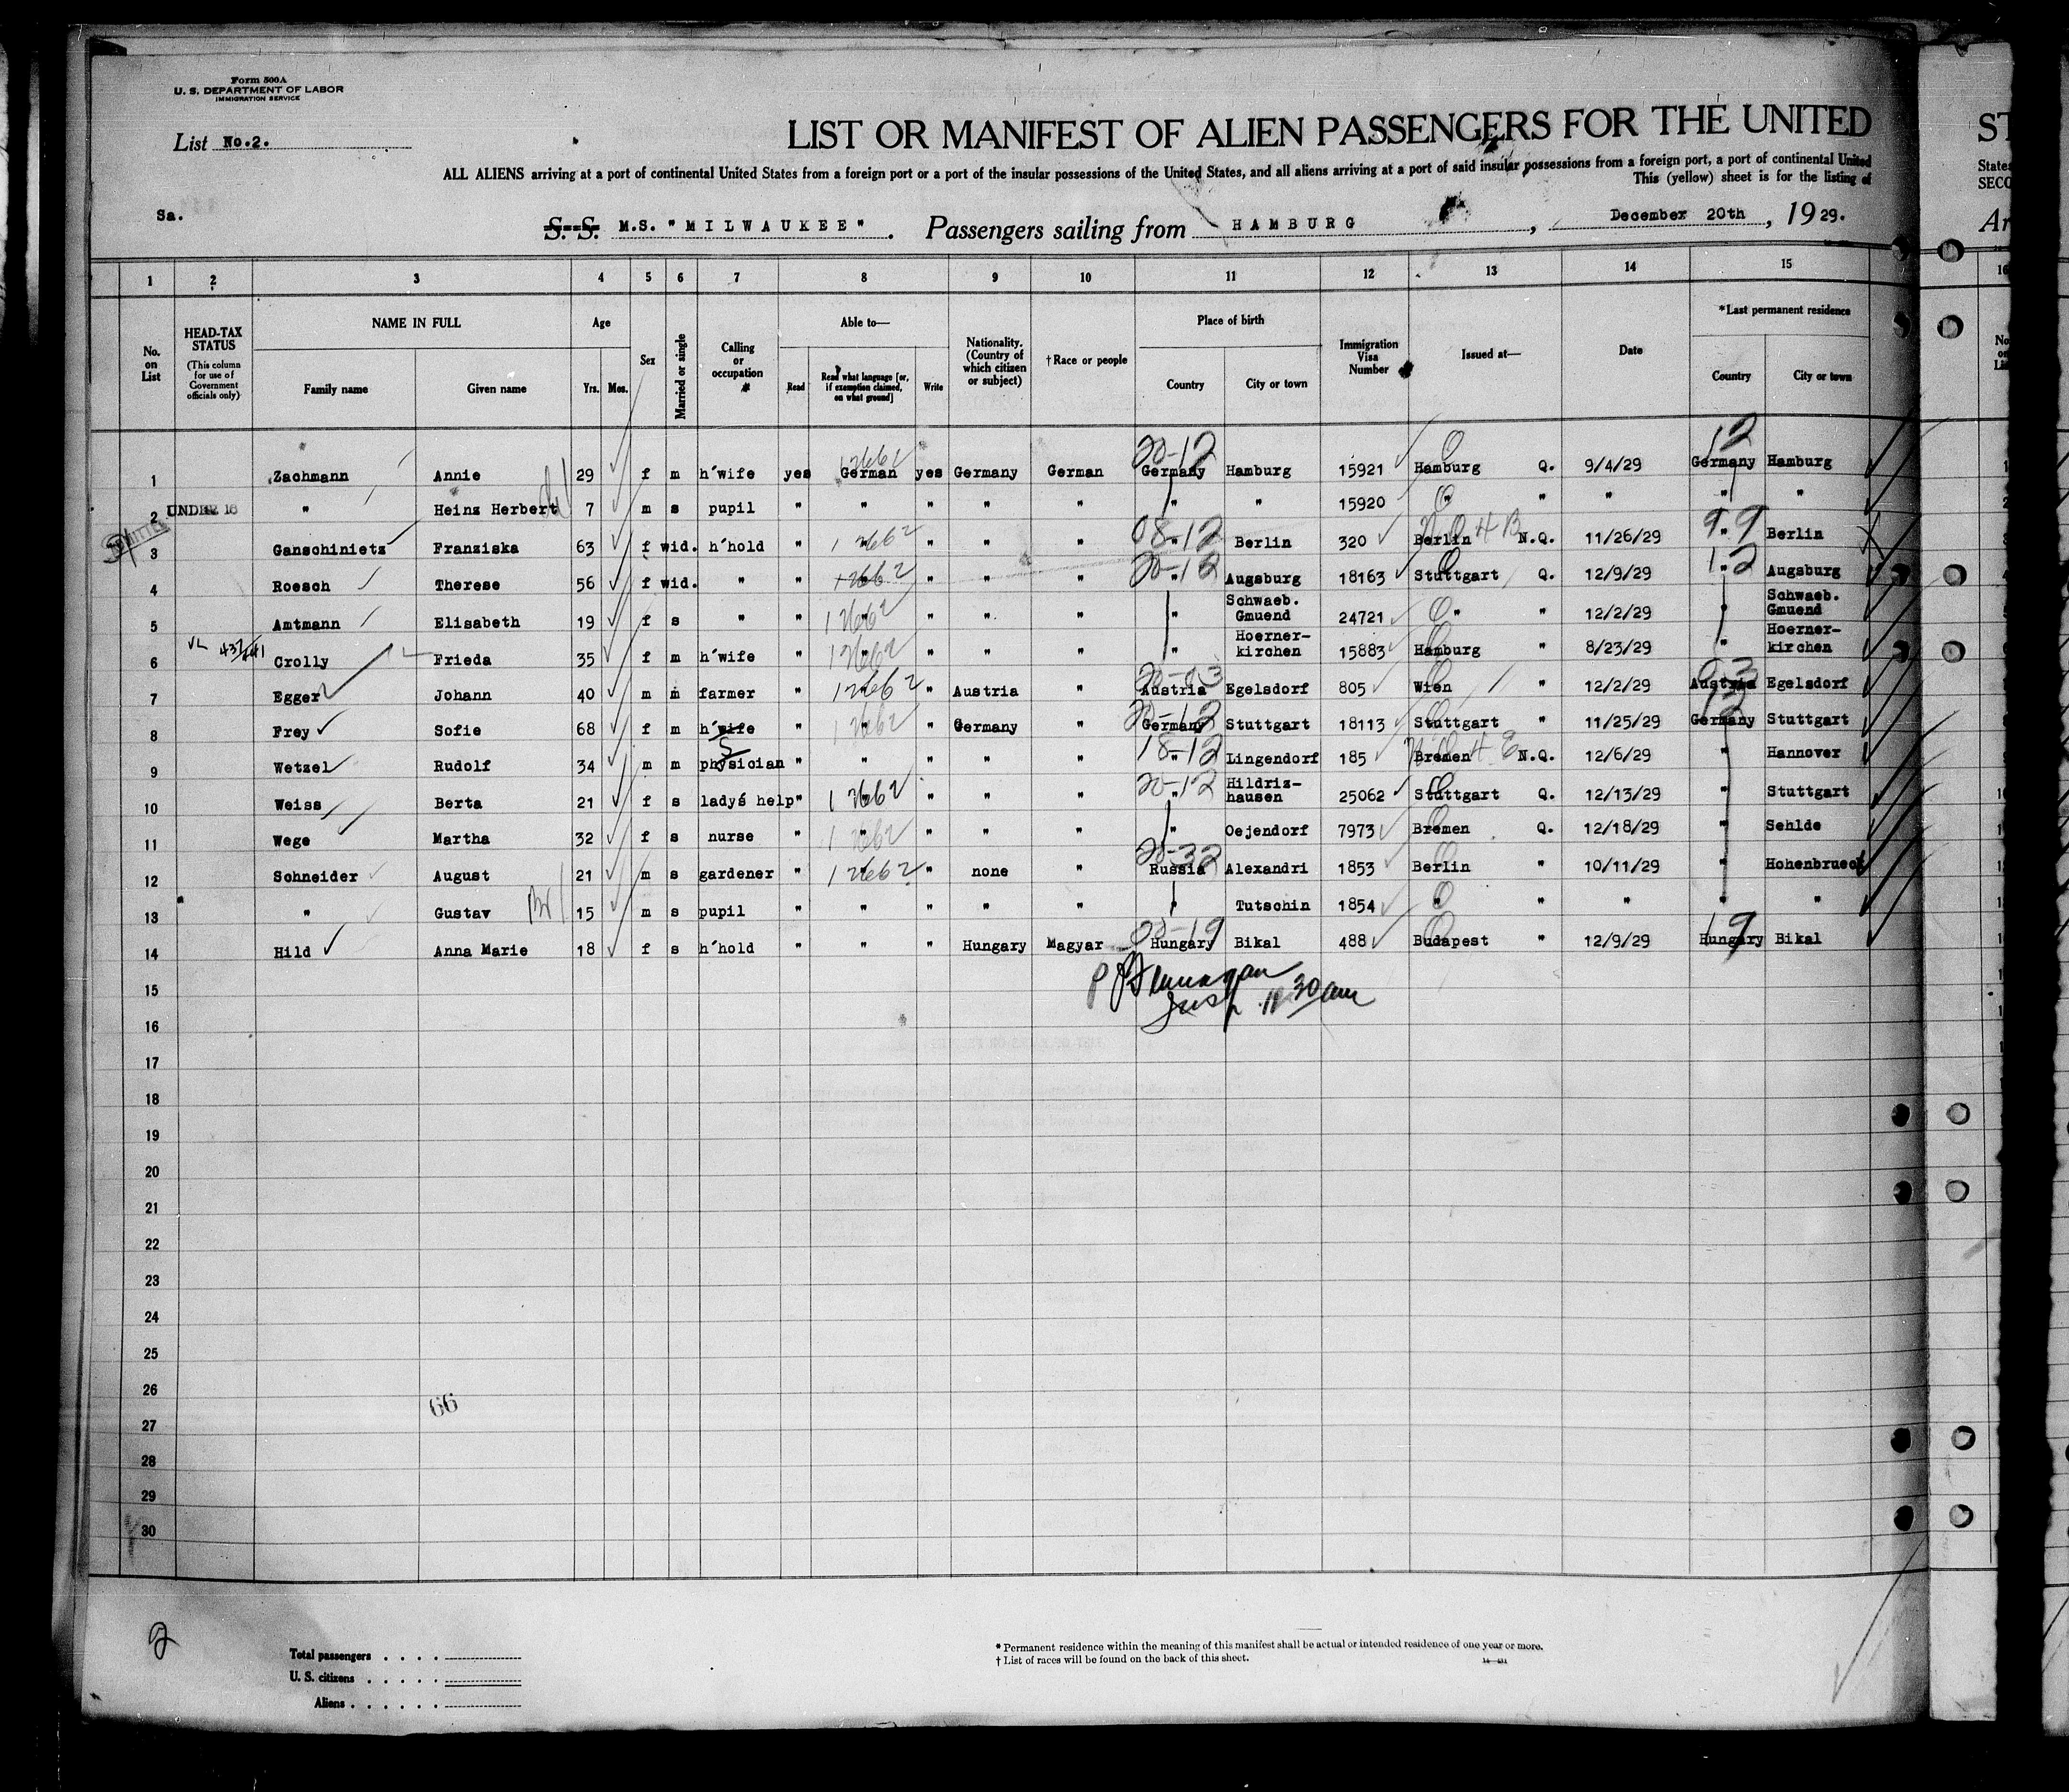 Form 500A
U. S. DEPARTMENT OF LABOR
IMMIGRATION SERVICE
List No.2.
LIST OR MANIFEST OF ALIEN PASSENGERS FOR THE UNITED
ST
ALL ALIENS arriving at a port of continental United States from a foreign port or a port of the insular possessions of the United States, and all aliens arriving at a port of said insular possessions from a foreign port, a port of continental United
States
This (yellow) sheet is for the listing of
SECO
Sa.
S. S. M.S. "MILWAUKEE". Passengers sailing from HAMBURG, December 20th, 1929.
Ar
1 2 3 4 5 6 7 8 9 10 11 12 13 14 15 16
No. on List
HEAD-TAX STATUS
(This column for use of Government officials only)
NAME IN FULL
Family name Given name
Age
Yrs. Mos.
Sex
Married or single
Calling or occupation
Able to—
Read
Read what language [or, if exemption claimed, on what ground]
Write
Nationality. (Country of which citizen or subject)
† Race or people
Place of birth
Country City or town
Immigration Visa Number
Issued at—
Date
*Last permanent residence
Country City or town
1 Zachmann Annie 29 f m h'wife yes German yes Germany German Germany Hamburg 15921 Hamburg Q. 9/4/29 Germany Hamburg
2 UNDER 16 " Heinz Herbert 7 m s pupil " " " " " " " 15920 " " " " "
3 Ganschinietz Franziska 63 f wid. h'hold " " " " " " Berlin 320 Berlin N.Q. 11/26/29 " Berlin
4 Roesch Therese 56 f wid. " " " " " " " Augsburg 18163 Stuttgart Q. 12/9/29 " Augsburg
5 Amtmann Elisabeth 19 f s " " " " " " " Schwaeb. Gmuend 24721 " " 12/2/29 " Schwaeb. Gmuend
6 Crolly Frieda 35 f m h'wife " " " " " " Hoerner-kirchen 15883 Hamburg " 8/23/29 " Hoerner-kirchen
7 Egger Johann 40 m m farmer " " " Austria " Austria Egelsdorf 805 Wien " 12/2/29 Austria Egelsdorf
8 Frey Sofie 68 f m h'wife " " " Germany " Germany Stuttgart 18113 Stuttgart " 11/25/29 Germany Stuttgart
9 Wetzel Rudolf 34 m m physician " " " " " " Lingendorf 185 Bremen N.Q. 12/6/29 " Hannover
10 Weiss Berta 21 f s lady's help " " " " " " Hildriz-hausen 25062 Stuttgart Q. 12/13/29 " Stuttgart
11 Wege Martha 32 f s nurse " " " " " " Oejendorf 7973 Bremen Q. 12/18/29 " Sehlde
12 Schneider August 21 m s gardener " " " none " Russia Alexandri 1853 Berlin " 10/11/29 " Hohenbrueck
13 " Gustav 15 m s pupil " " " " " " Tutschin 1854 " " " " "
14 Hild Anna Marie 18 f s h'hold " " " Hungary Magyar Hungary Bikal 488 Budapest " 12/9/29 Hungary Bikal
15
Insp 11 30 am
16
17
18
19
20
21
22
23
24
25
26
66
27
28
29
30
2
Total passengers
U. S. citizens
Aliens
* Permanent residence within the meaning of this manifest shall be actual or intended residence of one year or more.
† List of races will be found on the back of this sheet.